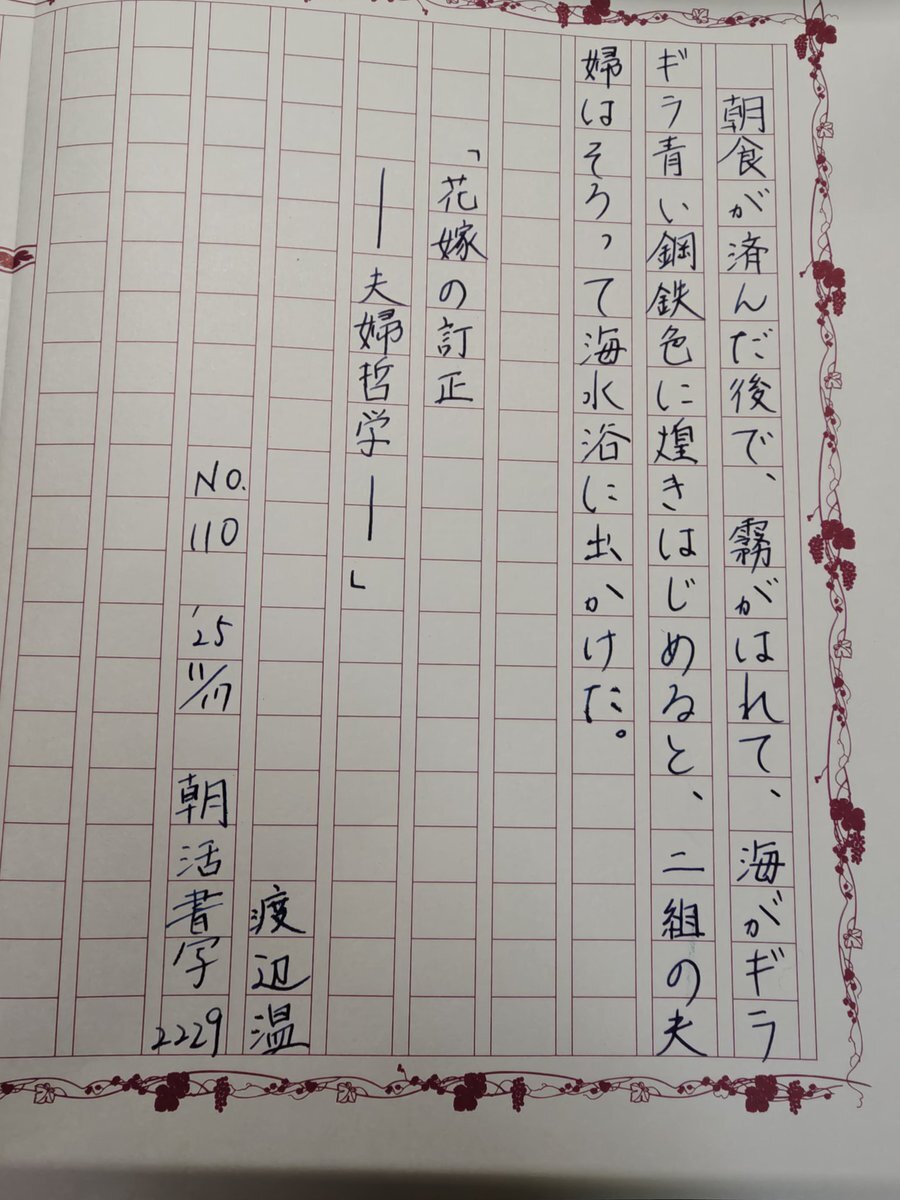 朝食が済んだ後で、霧がはれて、海がギラ
ギラ青い鋼鉄色に煌きはじめると、二組の夫
婦はそろって海水浴に出かけた。
「花嫁の訂正
―夫婦哲学―」
渡辺温
NO. 110 '25 11/17 朝活書写 2229